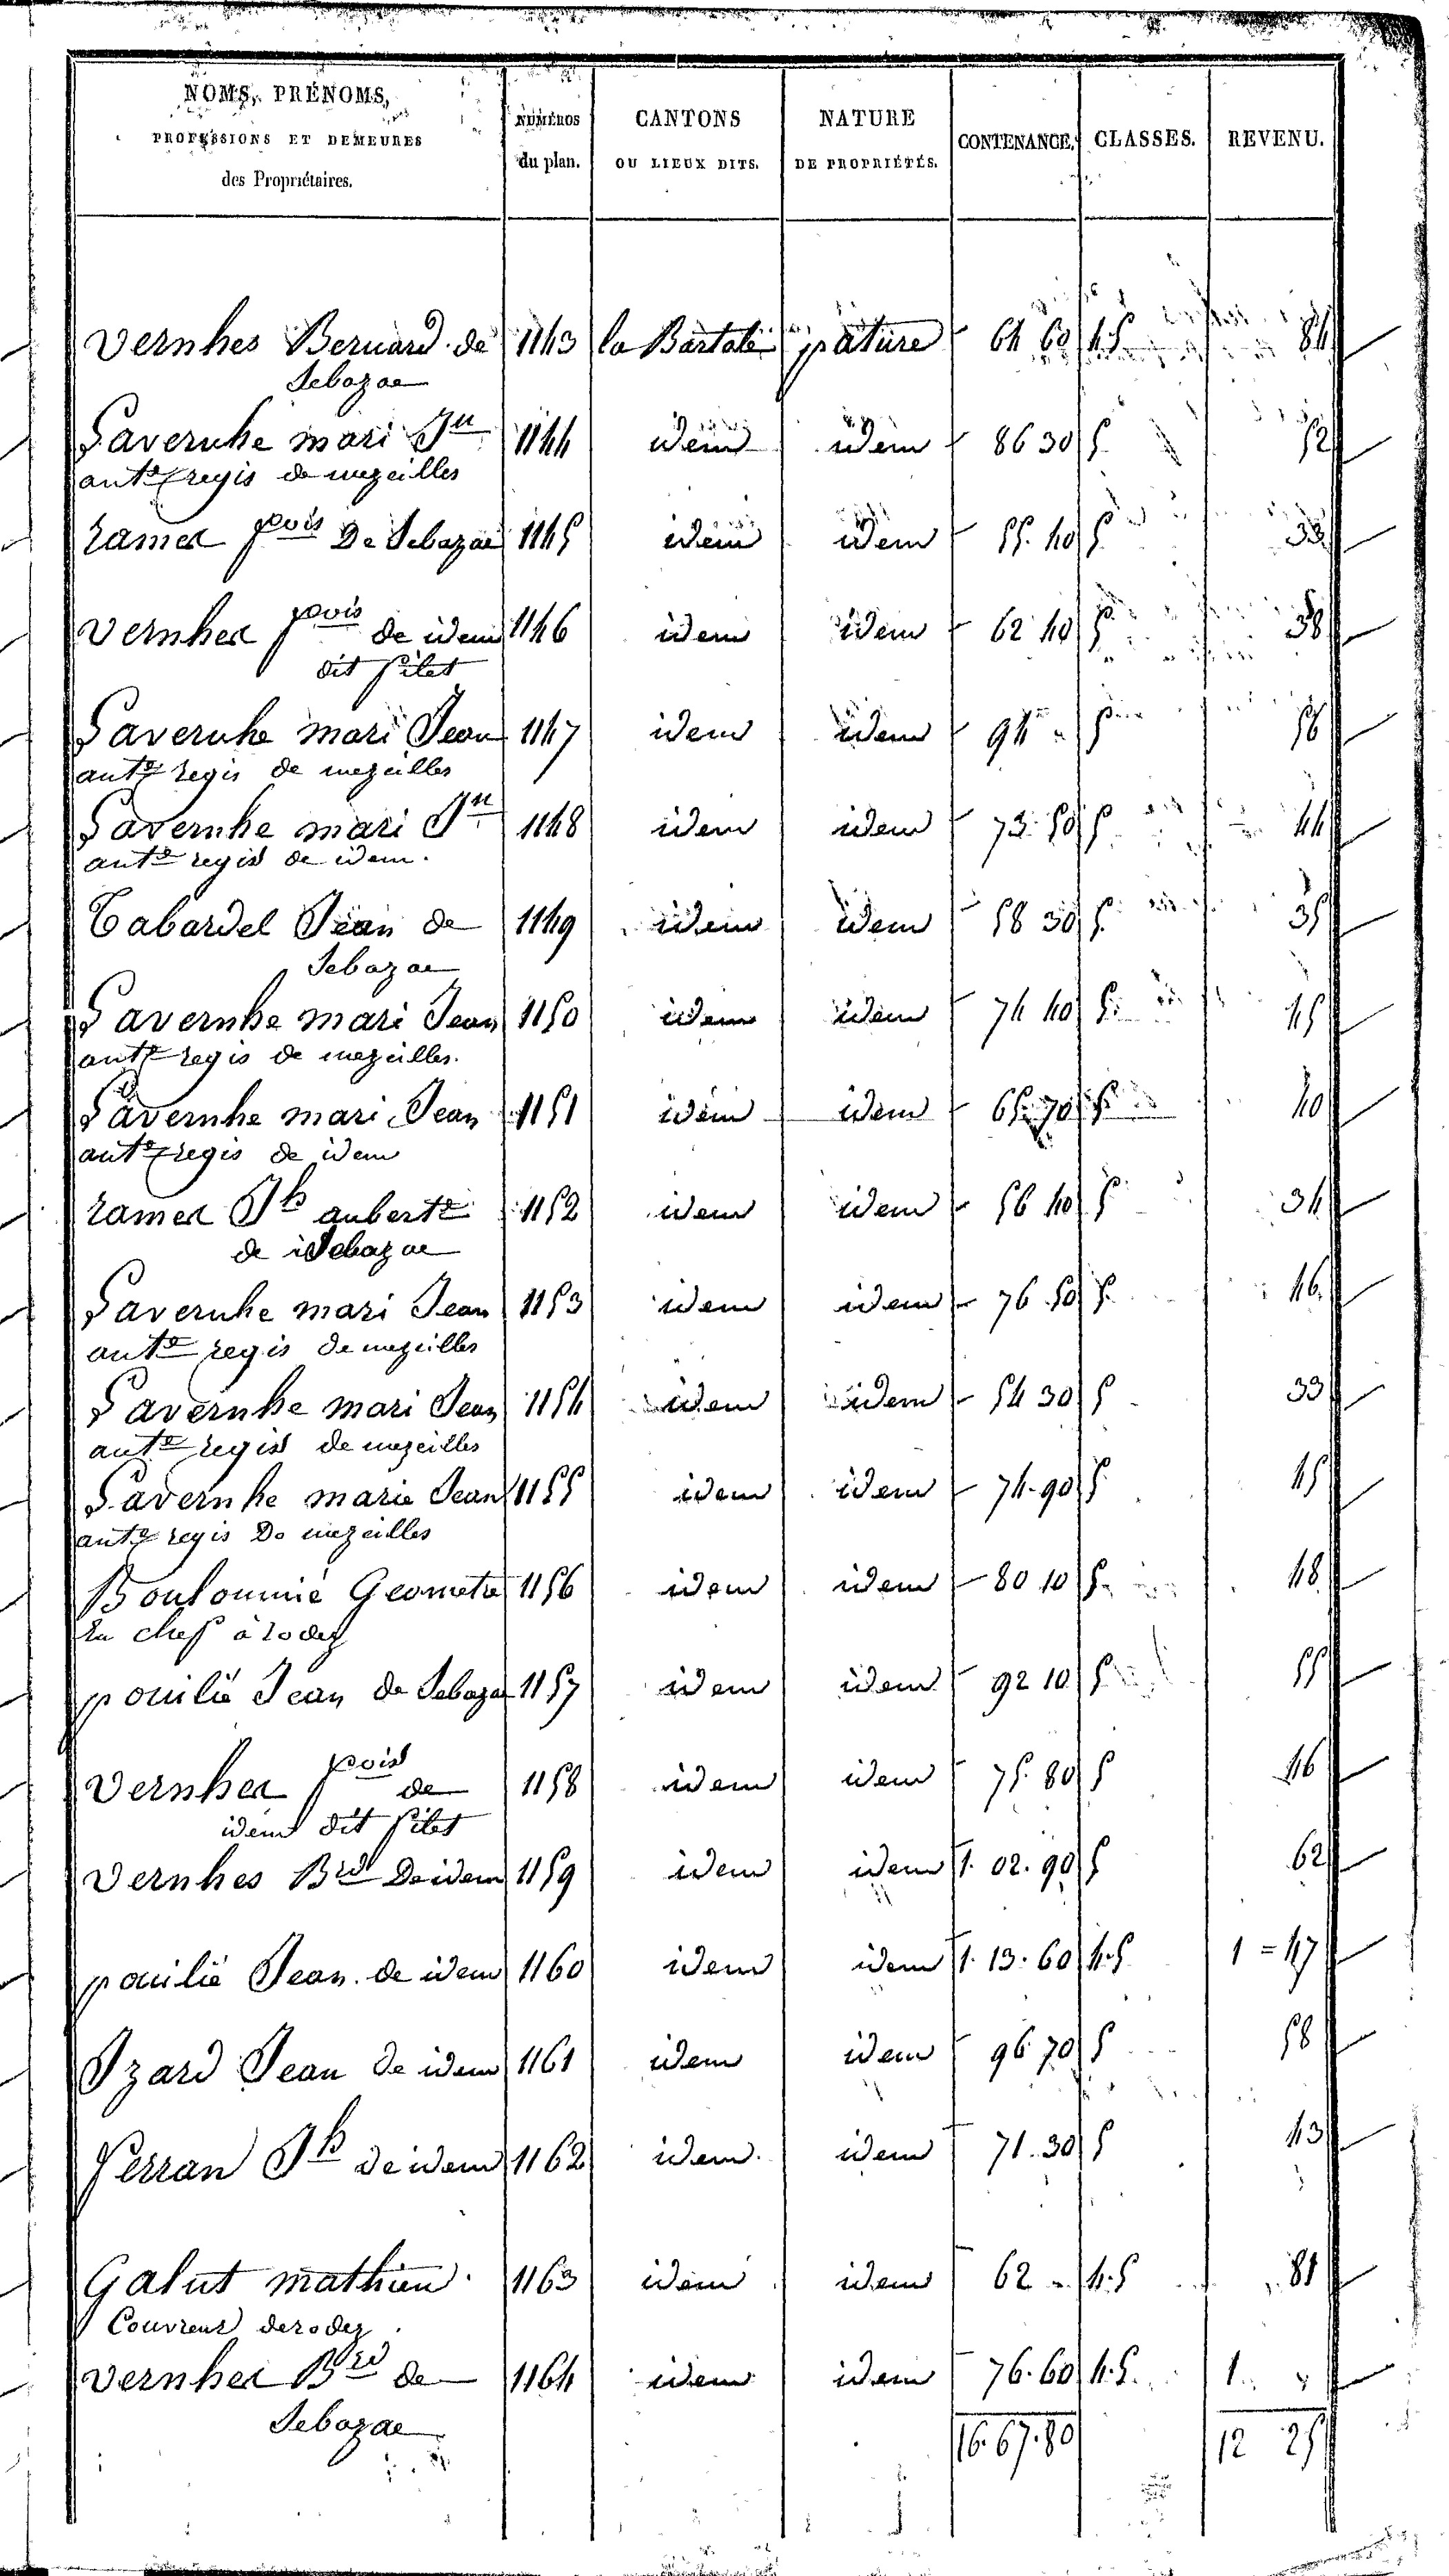 NOMS, PRÉNOMS,
PROFESSIONS ET DEMEURES
des Propriétaires.
NUMÉROS
du plan.
CANTONS
OU LIEUX DITS.
NATURE
DE PROPRIÉTÉS.
CONTENANCE.
CLASSES.
REVENU.
Vernhes Bernard de 1143 la Bartale pature 64 60 4.5 84
Sebazac
Lavernhe mari Jn 1144 idem idem 86 30 5 52
ante regis de mezeilles
rames fcois De Sebazac 1145 idem idem 55. 40 5 33
Vernhes fcois de idem 1146 idem idem 62 40 5 38
dit pilet
Lavernhe mari Jean 1147 idem idem 94 " 5 56
ante regis de mezeilles
Lavernhe mari Jn 1148 idem idem 73. 50 5 44
ante regis de idem.
Tabardel Jean de 1149 idem idem 58 30 5. 35
Sebazac
Lavernhe mari Jean 1150 idem idem 74 40 5. 45
ante regis de mezeilles.
Lavernhe mari Jean 1151 idem idem 65. 70 5 40
ante regis de idem
rames Jh auberte 1152 idem idem 56 40 5 34
de Sebazac
Lavernhe mari Jean 1153 idem idem 76 50 5. 46.
ante regis de mezeilles
Lavernhe mari Jean 1154 idem idem 54 30 5 33
ante regis de mezeilles
Lavernhe marie Jean 1155 idem idem 74. 90 5 45
ante regis De mezeilles
Bouloumié Geometre 1156 idem idem 80 10 5. 48
En chef à rodez
pouilié Jean de Sebazac 1157 idem idem 92 10 5 55
Vernhes fcois de 1158 idem idem 75. 80 5 46
idem dit pilet
Vernhes Brd De idem 1159 idem idem 1. 02. 90 5 62
pouilié Jean. de idem 1160 idem idem 1. 13. 60 4.5 1 = 47
Izard Jean de idem 1161 idem idem 96 70 5 58
ferran Jh de idem 1162 idem. idem 71. 30 5 43
Galut mathieu 1163 idem idem 62 " 4.5 81
Couvreur de rodez
Vernhes Brd de 1164 idem idem 76. 60 4.5. 1 "
Sebazac
16. 67. 80 12 25